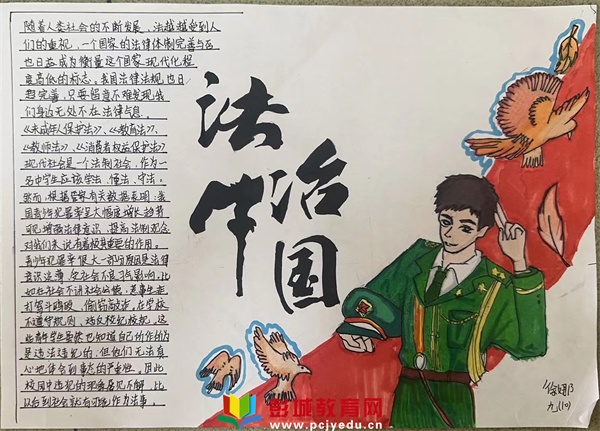 随着人类社会的不断发展，法越越受到人
们的重视，一个国家的法律体制完善与否
也日益成为衡量这个国家现代化程
度高低的标志。我国法律法规也日
趋完善，只要留意不难发现我
们身边无处不在法律气息。
《未成年人保护法》、《教育法》、
《教师法》、《消费者权益保护法》
现代社会是一个法制社会，作为一
名中学生应该学法、懂法、守法。
然而，根据警察有关数据表明，我
国青少年犯罪率呈大幅度增长趋势
可见增强法律意识，提高法制观念
对我们来说有着极其重要的作用。
青少年犯罪率很大一部分原因是法律
意识淡薄，受社会不良习气影响，比
如在社会不讲社会公德，惹事生非
打架斗殴，偷窃敲诈。在学校
不遵守规则，违反校纪校规，这
些青少年学生虽然也知道自己的作为
是违法违纪的，但他们无法真
心地体会到事态的严重性。因此
校园中违纪的现象屡见不鲜，比
以后到社会就有可能作为法事。
法治
中国
徐
九(10)
彭城教育网
www.pcjyedu.cn